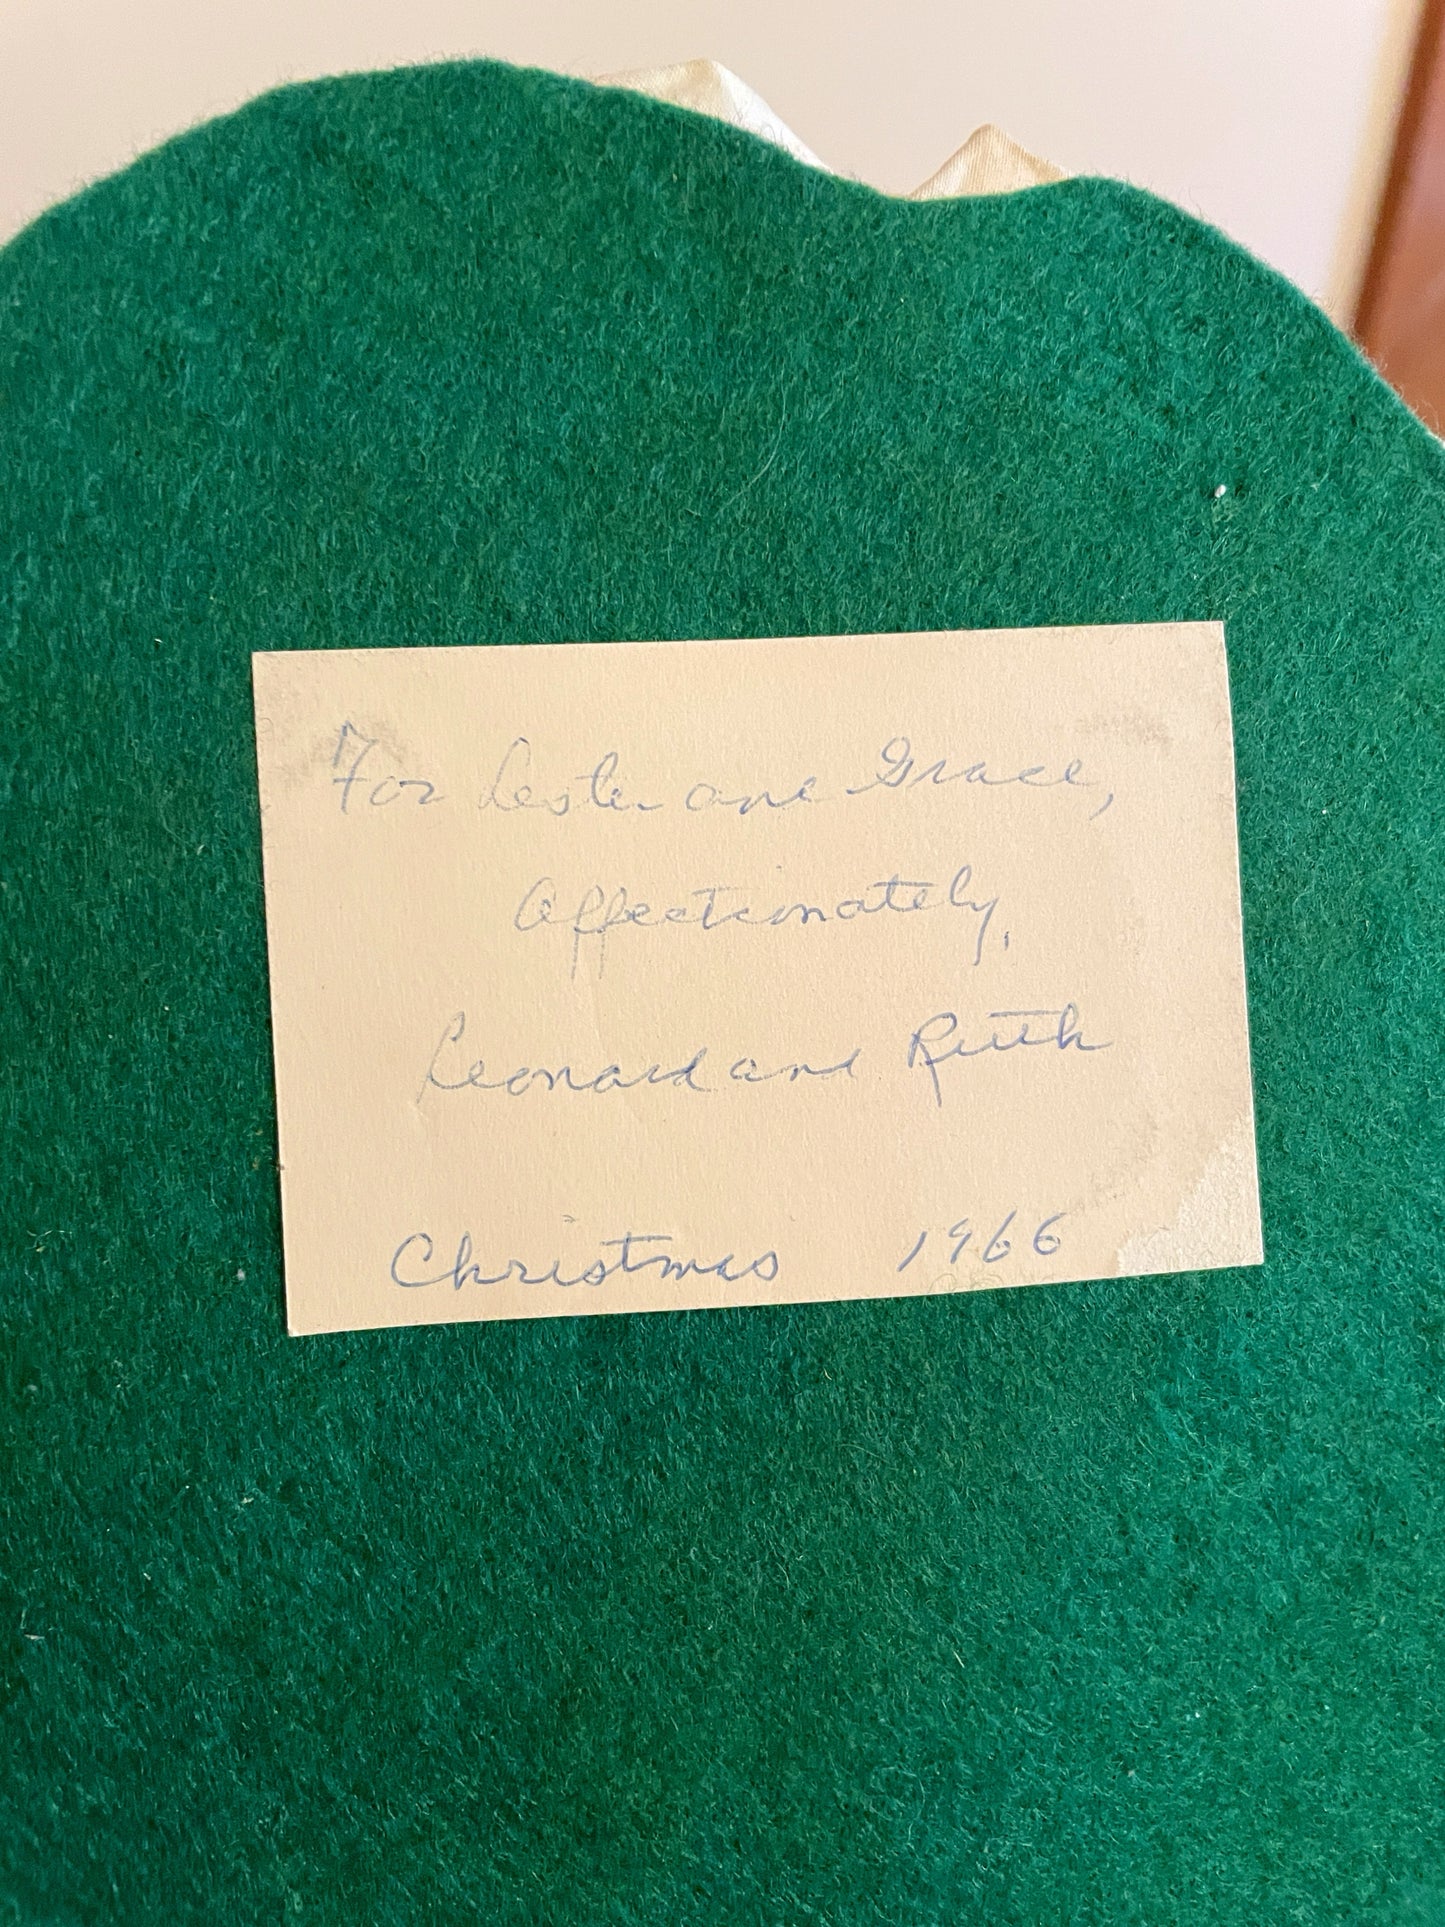 For Lester and Grace,
Affectionately,
Leonard and Ruth
Christmas 1966